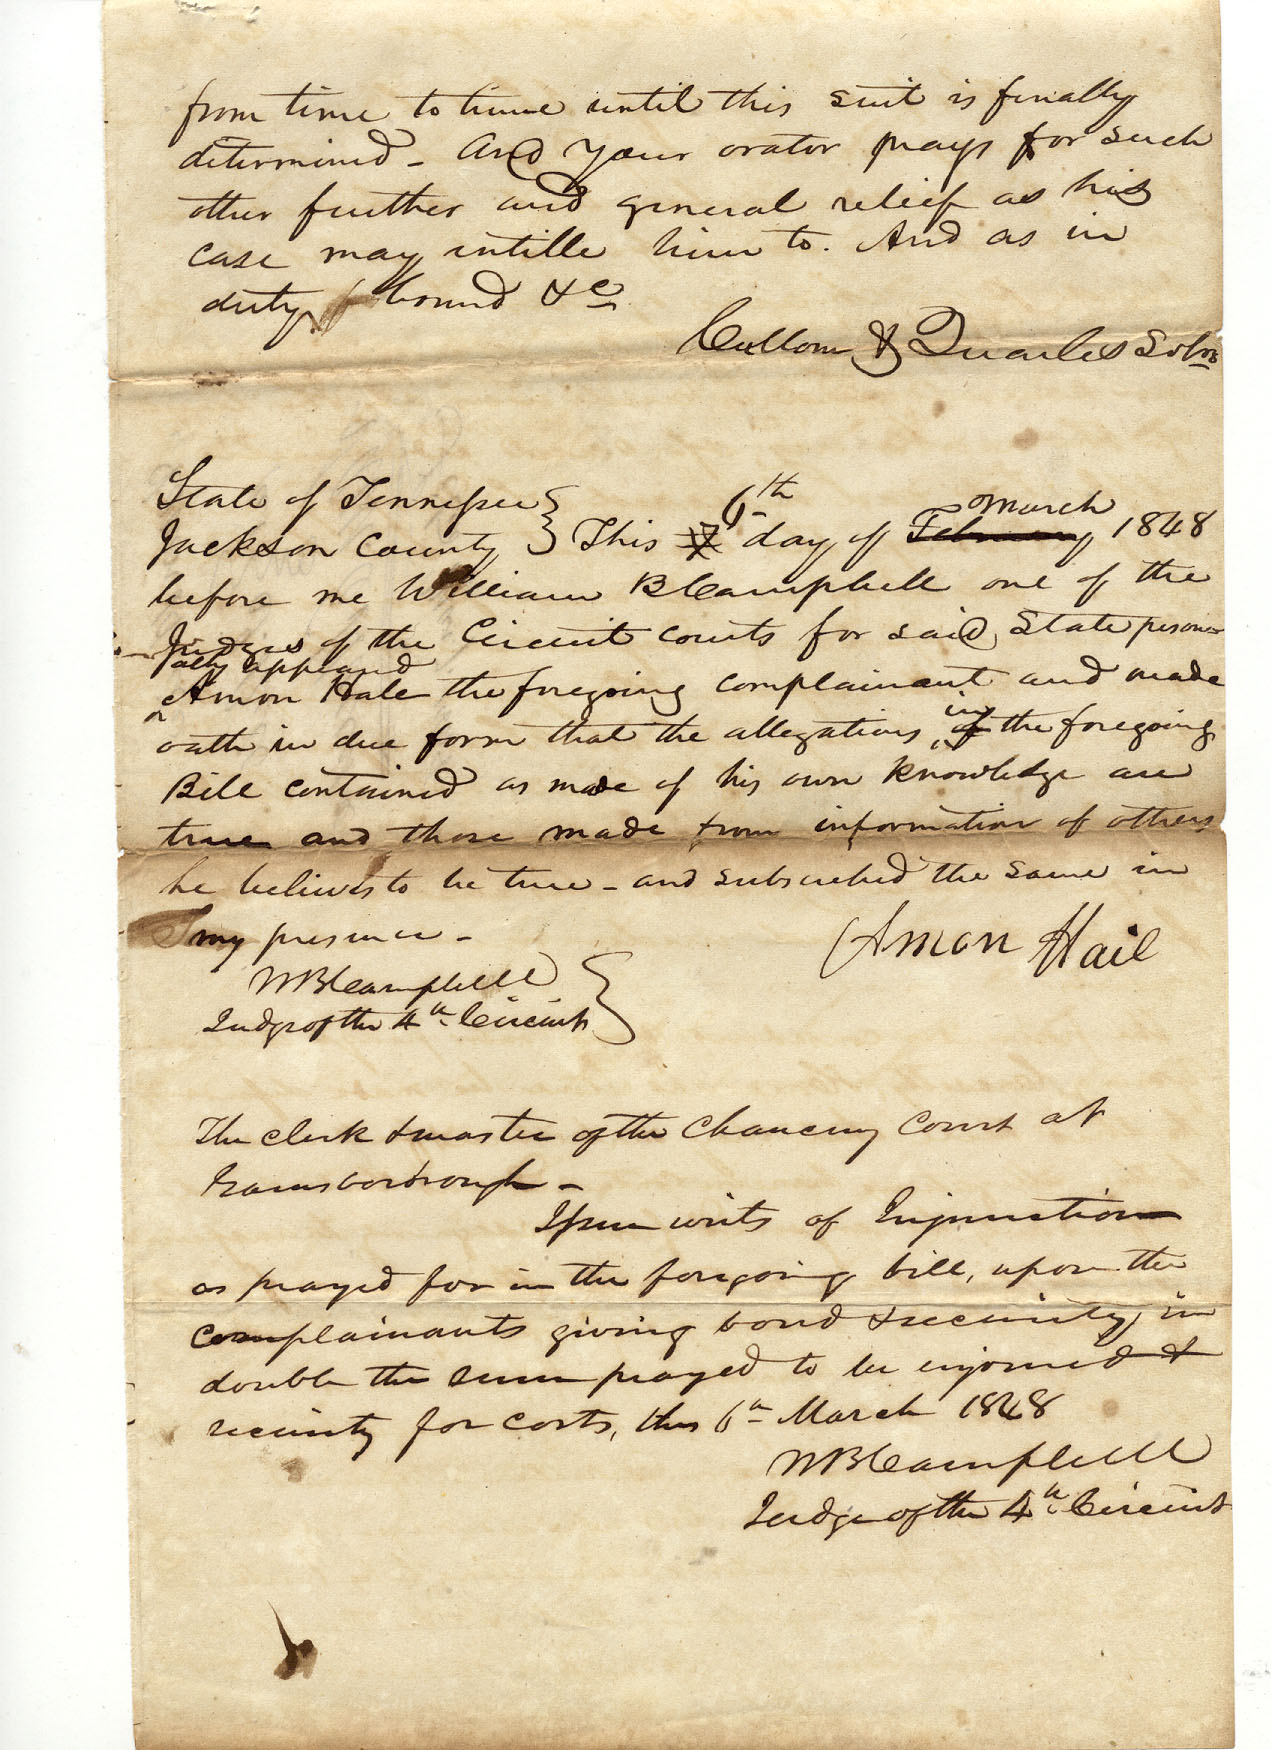 from time to time until this suit is finally
determined - And your orator prays for such
other further and general relief as his
case may intitle him to. And as in
duty bound &c
Cullom & Quarles Solrs
State of Tennessee }
Jackson County } This 6th day of February March 1848
before me William B Campbell one of the
Judges of the Circuit courts for said State person
ally appeard
Amon Hale the foregoing complainant and made
oath in due form that the allegations in of the foregoing
Bill contained as made of his own knowledge are
true and those made from information of others
he believes to be true - and subscribed the same in
my presence -
Amon Hail
WB Campbell
Judge of the 4th Circuit }
The clerk & master of the Chancery Court at
Gainsborough -
Issue writs of Injunction
as prayed for in the foregoing bill, upon the
complainants giving bond & security, in
double the sum prayed to be enjoined &
security for costs, this 6th March 1848
WB Campbell
Judge of the 4th Circuit